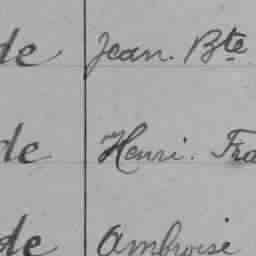 de Jean. Bte
de Henri. Fra
de Ambroise